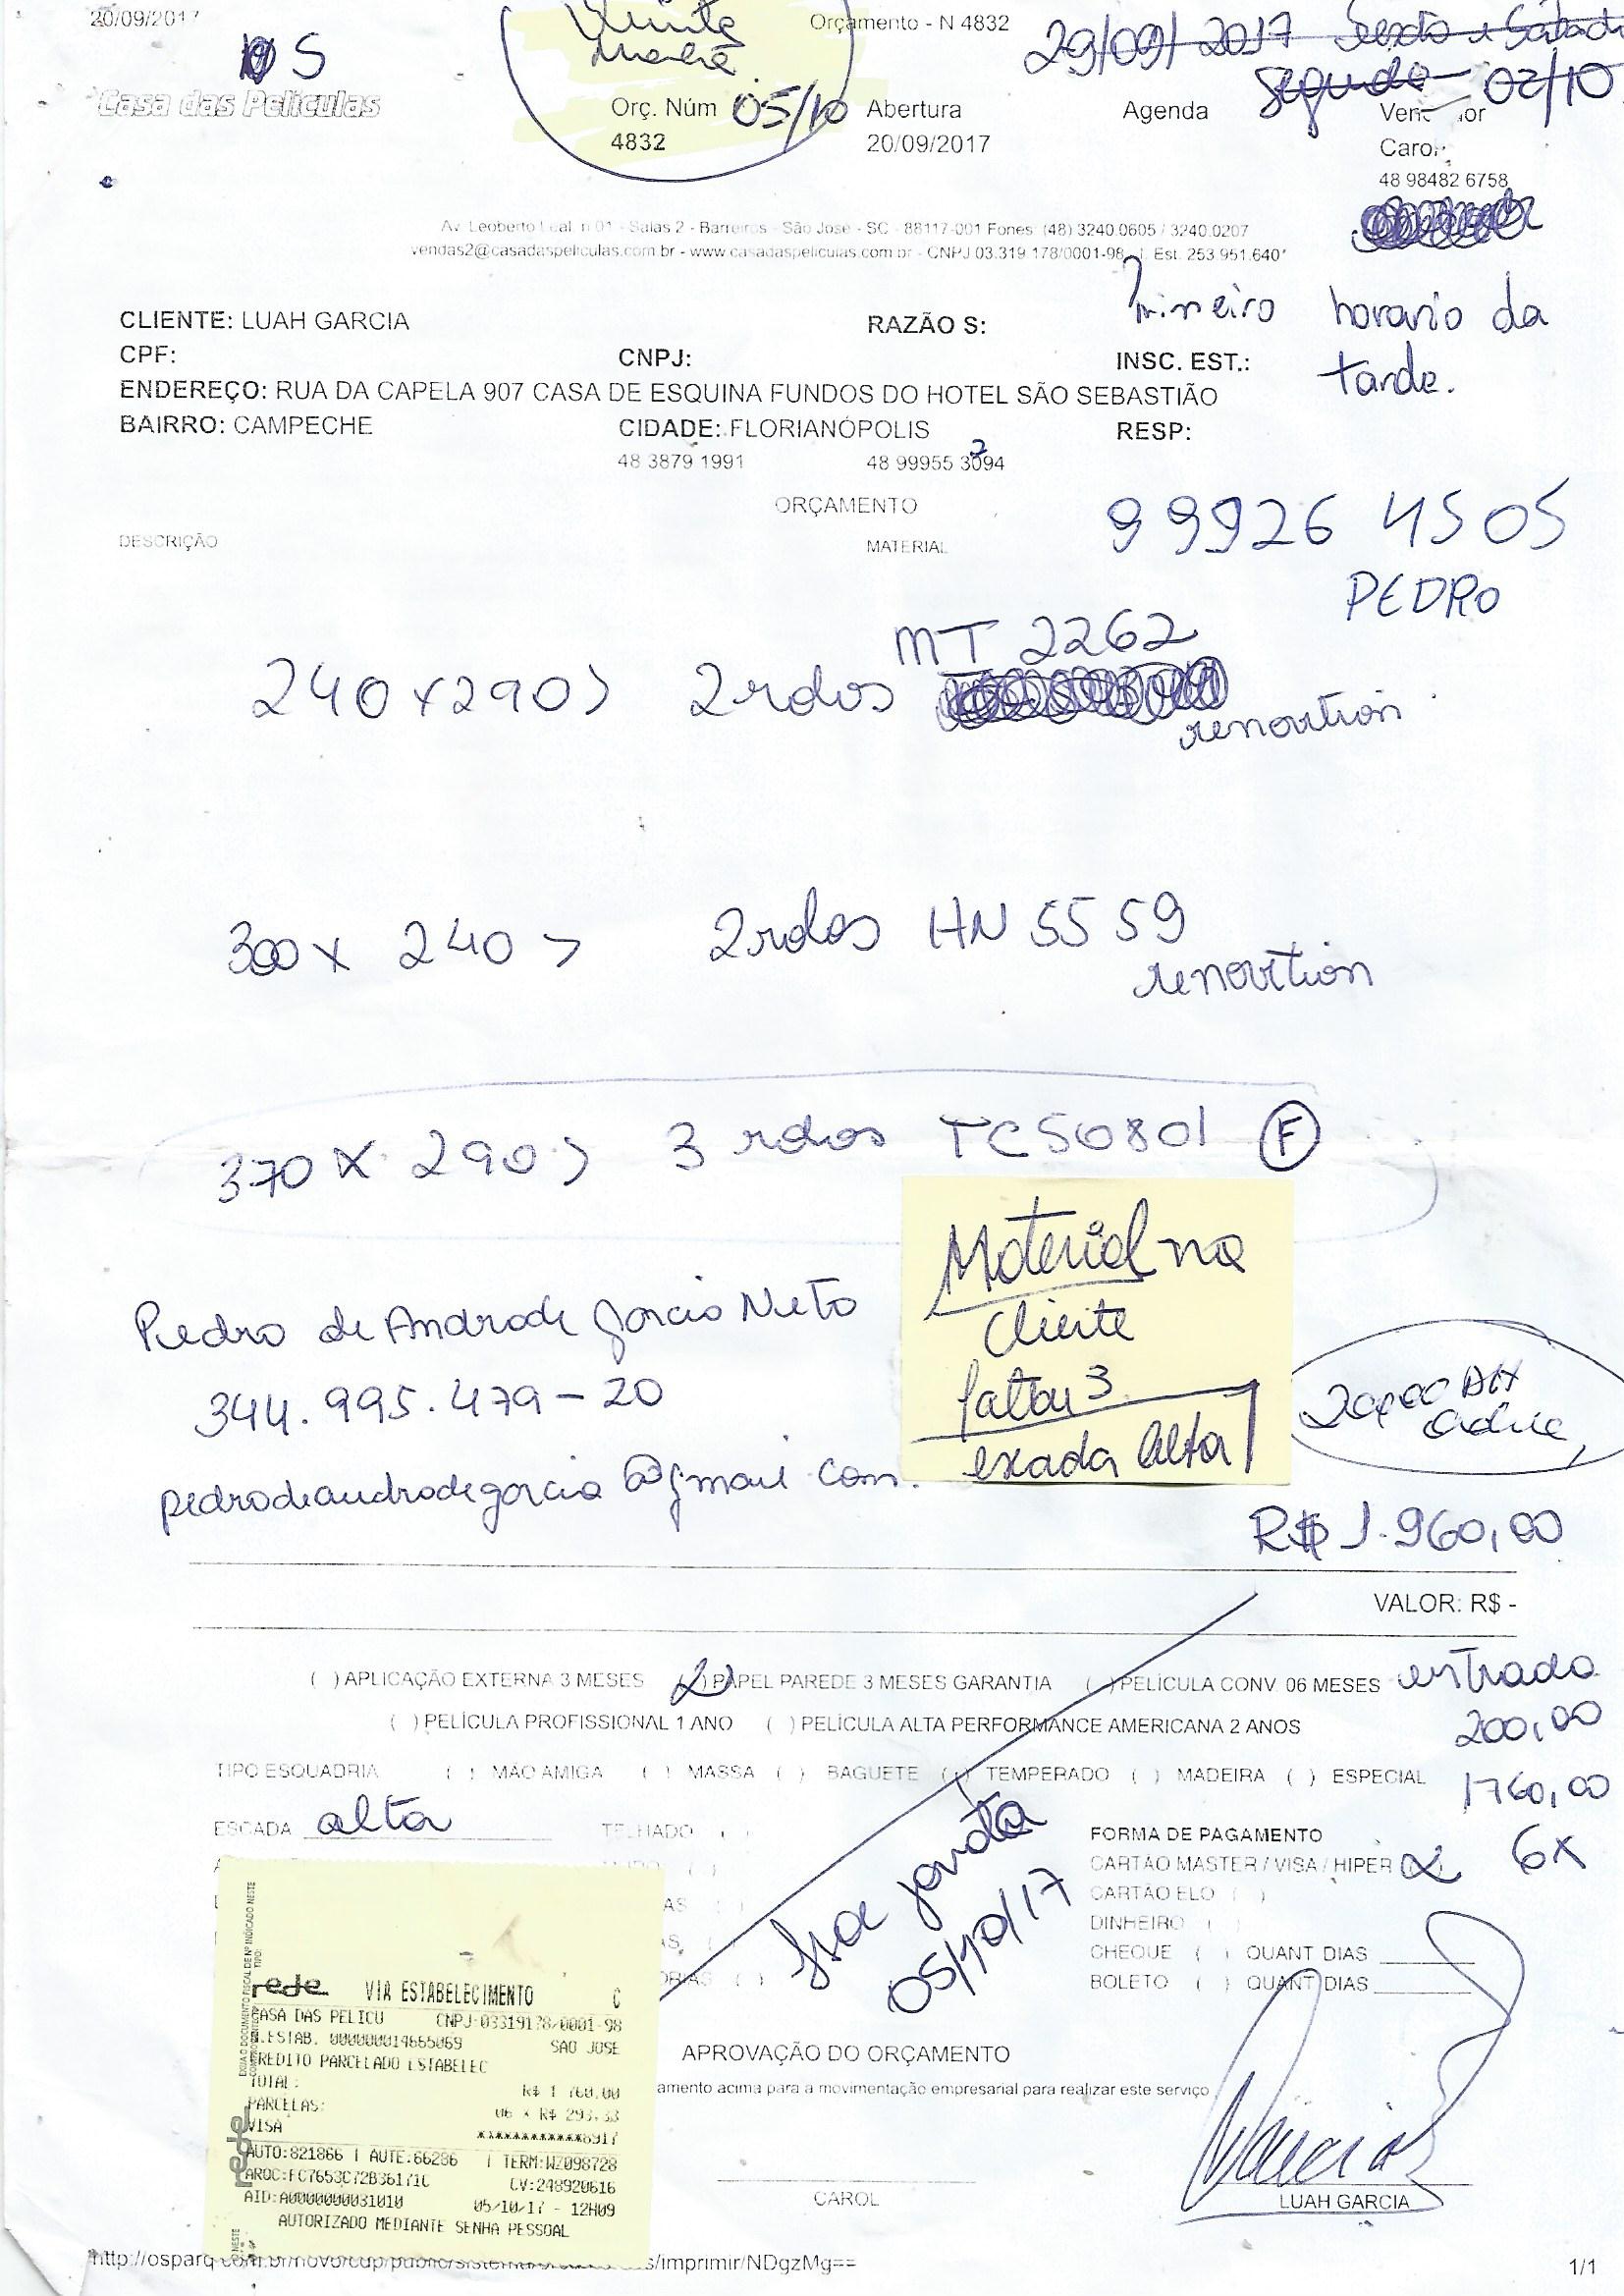 20/09/2017
Orçamento - N 4832
29/09/2017 Sexta e Sábado
Segunda 02/10
05
Casa das Películas
Quinta
manhã
Orç. Núm 05/10 Abertura Agenda
4832 20/09/2017
Carol
48 98482 6758
Av. Leoberto Leal, n 01 - Salas 2 - Barreiros - São José - SC - 88117-001 Fones: (48) 3240.0605 / 3240.0207
vendas2@casadaspeliculas.com.br - www.casadaspeliculas.com.br - CNPJ 03.319.178/0001-98 Est. 253.951.640
Primeiro horario da
tarde.
CLIENTE: LUAH GARCIA RAZÃO S:
CPF: CNPJ: INSC. EST.:
ENDEREÇO: RUA DA CAPELA 907 CASA DE ESQUINA FUNDOS DO HOTEL SÃO SEBASTIÃO
BAIRRO: CAMPECHE CIDADE: FLORIANÓPOLIS RESP:
48 3879 1991 48 99955 3094
2
ORÇAMENTO
99926 4505
DESCRIÇÃO MATERIAL
PEDRO
MT 2262
240x290> 2 rolos
renovation
300 x 240 > 2 rolos HN 5559
renovation
370 x 290 > 3 rolos TC50801 F
Material na
Cliente
faltou 3
exada alta
Pedro de Andrade Garcia Neto
344.995.479-20
pedrodeandradegarcia@gmail.com.
R$ 1.960,00
VALOR: R$ -
( ) APLICAÇÃO EXTERNA 3 MESES ( ) PAPEL PAREDE 3 MESES GARANTIA ( ) PELÍCULA CONV. 06 MESES entrada
( ) PELÍCULA PROFISSIONAL 1 ANO ( ) PELÍCULA ALTA PERFORMANCE AMERICANA 2 ANOS 200,00
TIPO ESQUADRIA ( ) MÃO AMIGA ( ) MASSA ( ) BAGUETE ( ) TEMPERADO ( ) MADEIRA ( ) ESPECIAL 1760,00
ESCADA alta TELHADO ( )
FORMA DE PAGAMENTO
CARTÃO MASTER / VISA / HIPER 6x
CARTÃO ELO ( )
DINHEIRO ( )
CHEQUE ( ) QUANT DIAS
BOLETO ( ) QUANT DIAS
05/10/17
rede VIA ESTABELECIMENTO C
CASA DAS PELICU CNPJ-03319178/0001-98
N.ESTAB. 000000014665069 SAO JOSE
CREDITO PARCELADO ESTABELEC
TOTAL: R$ 1 760,00
PARCELAS: 06 x R$ 293,33
VISA ************6917
AUTO:821866 | AUTE:66286 | TERM:WZ098728
ARQC:FC7653C72B36171C CV:248920616
AID:A0000000031010 05/10/17 - 12H09
AUTORIZADO MEDIANTE SENHA PESSOAL
APROVAÇÃO DO ORÇAMENTO
amento acima para a movimentação empresarial para realizar este serviço
CAROL LUAH GARCIA
s/imprimir/NDgzMg== 1/1